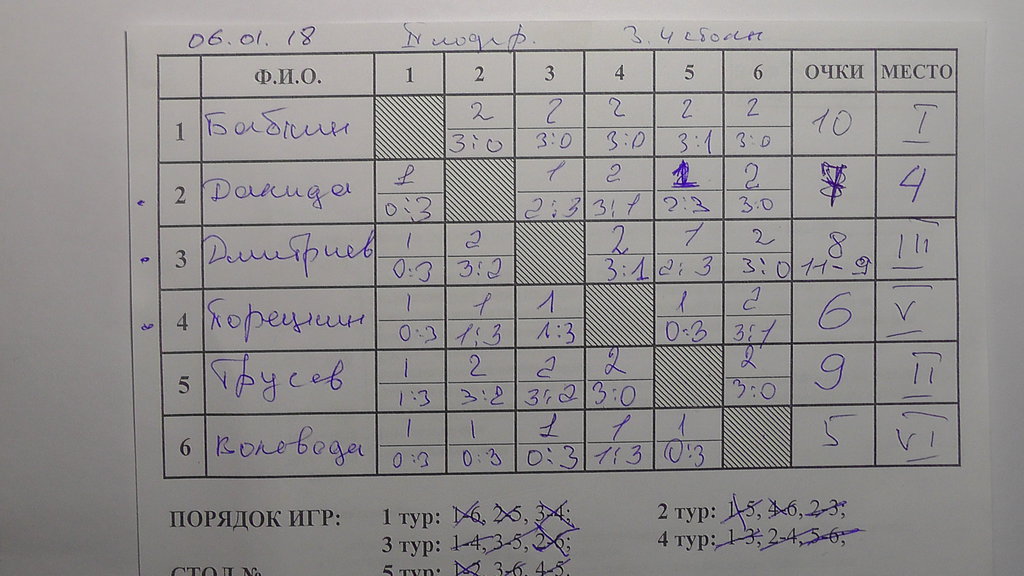 06.01.18 3.4 стол
Ф.И.О. 1 2 3 4 5 6 ОЧКИ МЕСТО
2 2 2 2 2
1 Бабкин 10 I
3:0 3:0 3:0 3:1 3:0
1 1 2 1 2
2 7 4
0:3 2:3 3:1 2:3 3:0
1 2 2 1 2 8
3 Дмитриев III
0:3 3:2 3:1 2:3 3:0 11-9
1 1 1 1 2
4 6 V
0:3 1:3 1:3 0:3 3:1
1 2 2 2 2
5 9 II
1:3 3:2 3:2 3:0 3:0
1 1 1 1 1
6 Воловода 5 VI
0:3 0:3 0:3 1:3 0:3
ПОРЯДОК ИГР: 1 тур: 1-6, 2-5, 3-4; 2 тур: 1-5, 4-6, 2-3;
3 тур: 1-4, 3-5, 2-6; 4 тур: 1-3, 2-4, 5-6;
СТОЛ № 5 тур: 1-2, 3-6, 4-5.